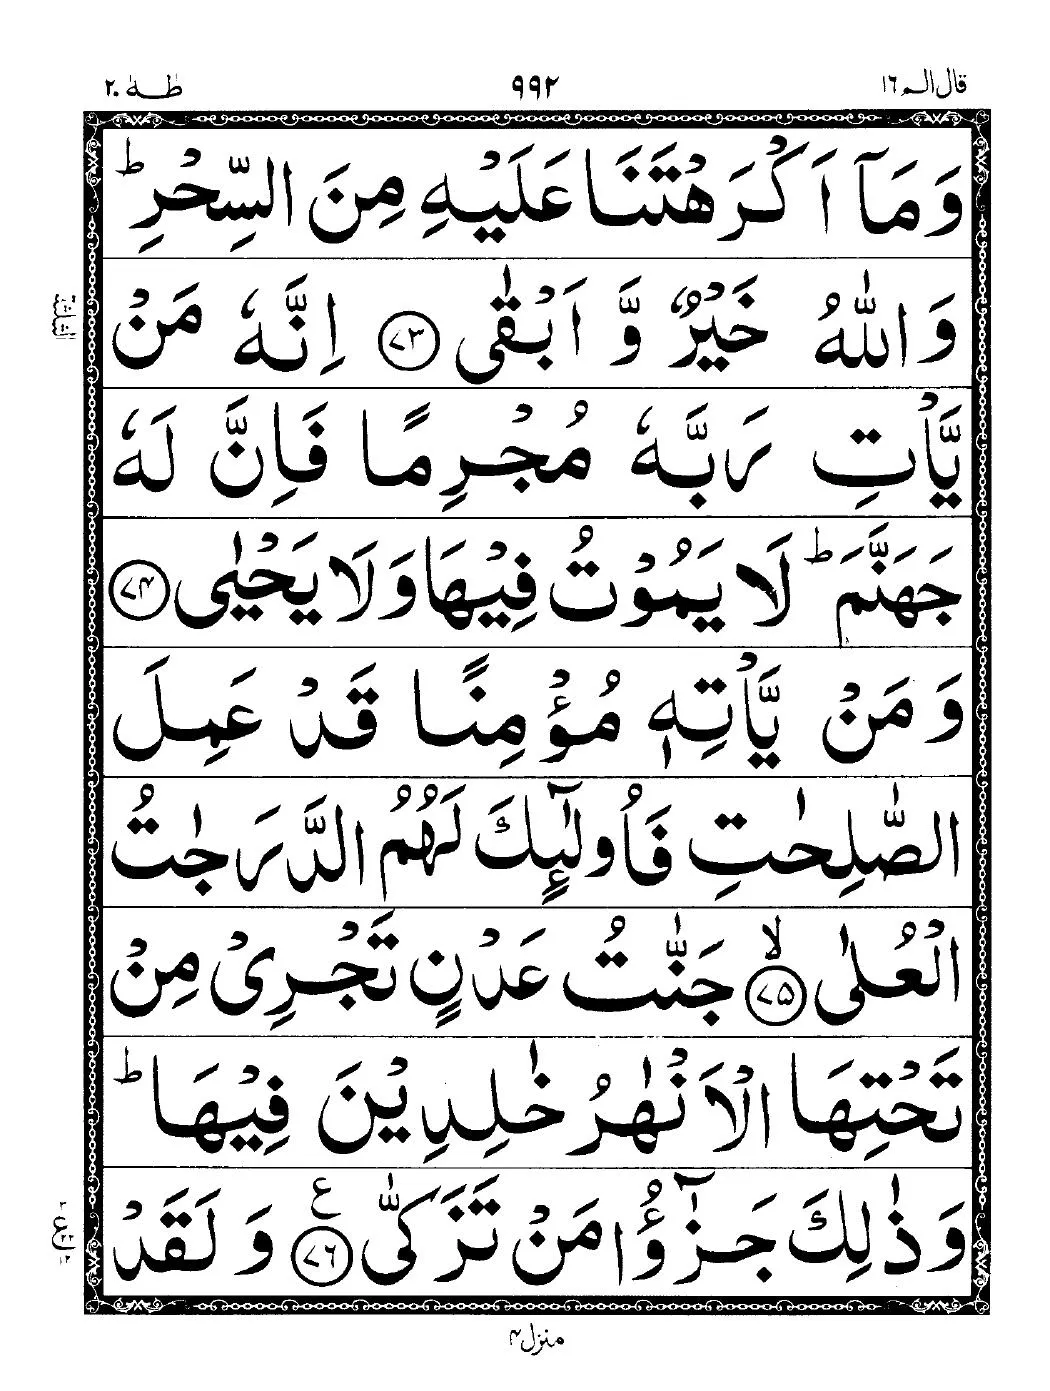 قال الم ١٦
٩٩٢
طٰهٰ ٢٠
وَمَآ اَكْرَهْتَنَا عَلَيْهِ مِنَ السِّحْرِ ؕ
وَاللّٰهُ خَيْرٌ وَّ اَبْقٰى ﴿۷۳﴾ اِنَّهٗ مَنْ
يَّاْتِ رَبَّهٗ مُجْرِمًا فَاِنَّ لَهٗ
جَهَنَّمَ ؕ لَا يَمُوْتُ فِيْهَا وَلَا يَحْيٰى ﴿۷۴﴾
وَمَنْ يَّاْتِهٖ مُؤْمِنًا قَدْ عَمِلَ
الصّٰلِحٰتِ فَاُولٰٓئِكَ لَهُمُ الدَّرَجٰتُ
الْعُلٰى ۙ﴿۷۵﴾ جَنّٰتُ عَدْنٍ تَجْرِىْ مِنْ
تَحْتِهَا الْاَنْهٰرُ خٰلِدِيْنَ فِيْهَا ؕ
وَذٰلِكَ جَزٰٓؤُا مَنْ تَزَكّٰى ﴿۷۶﴾ ع وَ لَقَدْ
الثلثة
ع
منزل ۴